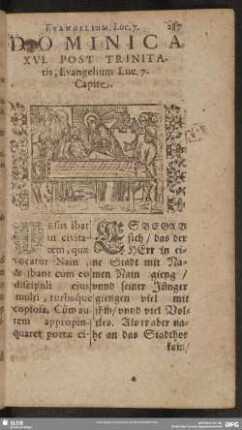 EVANGELIUM Luc. 7. 287
DOMINICA
XVI. POST TRINITA-
tis, Evangelium Luc. 7.
Capite.
Jesus ibat
in civita-
tem, quæ
vocatur Nain,
& ibant cum eo
discipuli ejus
multi, turbaque
copiosa. Cùm au-
tem appropin-
quaret portæ ci-
ES BEGAB
sich / das der
HErr in ei-
ne Stadt mit Na-
men Nain gieng /
vnnd seiner Jünger
giengen viel mit
jhm / vnnd viel Vol-
ckes. Als er aber na-
he an das Stadthor
kam /